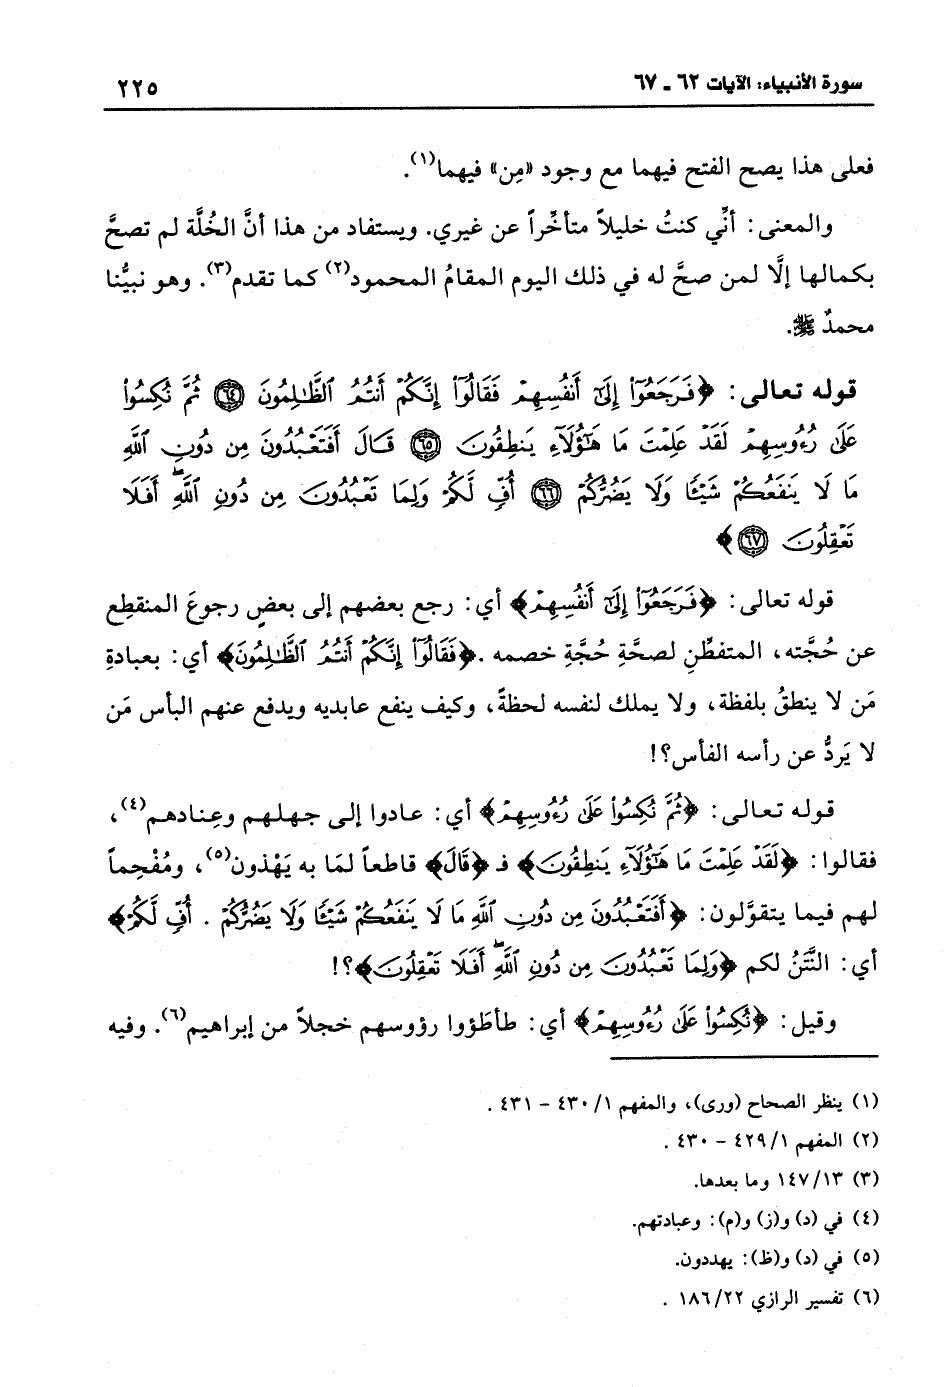 سورة الأنبياء: الآيات ٦٢ ـ ٦٧ ٢٢٥
فعلى هذا يصح الفتح فيهما مع وجود «مِن» فيهما(١).
والمعنى: أنِّي كنتُ خليلاً متأخِّراً عن غيري. ويستفاد من هذا أنَّ الخُلَّة لم تصحَّ
بكمالها إلَّا لمن صحَّ له في ذلك اليوم المقامُ المحمود(٢) كما تقدم(٣). وهو نبيُّنا
محمدٌ ﷺ.
قوله تعالى: ﴿فَرَجَعُوٓا۟ إِلَىٰٓ أَنفُسِهِمْ فَقَالُوٓا۟ إِنَّكُمْ أَنتُمُ ٱلظَّٰلِمُونَ ٦٤ ثُمَّ نُكِسُوا۟
عَلَىٰ رُءُوسِهِمْ لَقَدْ عَلِمْتَ مَا هَٰٓؤُلَآءِ يَنطِقُونَ ٦٥ قَالَ أَفَتَعْبُدُونَ مِن دُونِ ٱللَّهِ
مَا لَا يَنفَعُكُمْ شَيْـًٔا وَلَا يَضُرُّكُمْ ٦٦ أُفٍّ لَّكُمْ وَلِمَا تَعْبُدُونَ مِن دُونِ ٱللَّهِۖ أَفَلَا
تَعْقِلُونَ ٦٧﴾
قوله تعالى: ﴿فَرَجَعُوٓا۟ إِلَىٰٓ أَنفُسِهِمْ﴾ أي: رجع بعضهم إلى بعضٍ رجوعَ المنقطِع
عن حُجَّته، المتفطِّنِ لصحَّةِ حُجَّةِ خصمه. ﴿فَقَالُوٓا۟ إِنَّكُمْ أَنتُمُ ٱلظَّٰلِمُونَ﴾ أي: بعبادةِ
مَن لا ينطقُ بلفظة، ولا يملك لنفسه لحظةً، وكيف ينفع عابديه ويدفع عنهم البأس مَن
لا يَردُّ عن رأسه الفأس؟!
قوله تعالى: ﴿ثُمَّ نُكِسُوا۟ عَلَىٰ رُءُوسِهِمْ﴾ أي: عادوا إلى جهلهم وعِنادهم(٤)،
فقالوا: ﴿لَقَدْ عَلِمْتَ مَا هَٰٓؤُلَآءِ يَنطِقُونَ﴾ فـ ﴿قَالَ﴾ قاطعاً لمَا به يَهْذون(٥)، ومُفْحِماً
لهم فيما يتقوَّلون: ﴿أَفَتَعْبُدُونَ مِن دُونِ ٱللَّهِ مَا لَا يَنفَعُكُمْ شَيْـًٔا وَلَا يَضُرُّكُمْ . أُفٍّ لَّكُمْ﴾
أي: النَّتَنُ لكم ﴿وَلِمَا تَعْبُدُونَ مِن دُونِ ٱللَّهِۖ أَفَلَا تَعْقِلُونَ﴾؟!
وقيل: ﴿نُكِسُوا۟ عَلَىٰ رُءُوسِهِمْ﴾ أي: طأطَؤوا رؤوسهم خجلاً من إبراهيم(٦). وفيه
(١) ينظر الصحاح (ورى)، والمفهم ٤٣٠/١ - ٤٣١ .
(٢) المفهم ٤٢٩/١ - ٤٣٠ .
(٣) ١٤٧/١٣ وما بعدها.
(٤) في (د) و(ز) و(م): وعبادتهم.
(٥) في (د) و(ظ): يهددون.
(٦) تفسير الرازي ١٨٦/٢٢ .